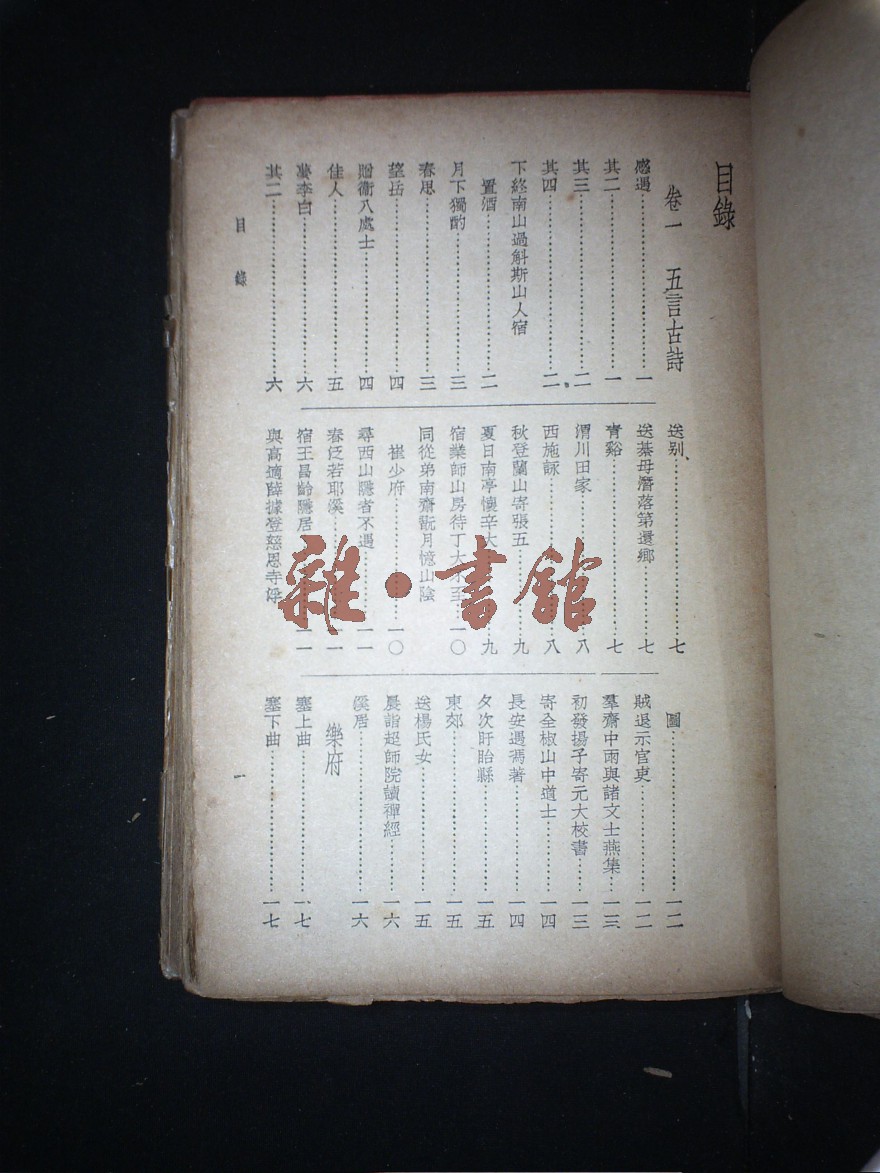 目錄
卷一　五言古詩
感遇……一
其二……一
其三……二
其四……二
下終南山過斛斯山人宿
置酒……二
月下獨酌……三
春思……三
望岳……四
贈衞八處士……四
佳人……五
夢李白……六
其二……六
送別……七
送綦毋潛落第還鄉……七
青谿……七
渭川田家……八
西施詠……八
秋登蘭山寄張五……九
夏日南亭懷辛大……九
宿業師山房待丁大不至…一〇
同從弟南齋翫月憶山陰
崔少府……一〇
尋西山隱者不遇……一一
春泛若耶溪……一一
宿王昌齡隱居……一一
與高適薛據登慈恩寺浮
圖……一二
賊退示官吏……一二
羣齋中雨與諸文士燕集…一三
初發揚子寄元大校書……一三
寄全椒山中道士……一四
長安遇馮著……一四
夕次盱眙縣……一五
東郊……一五
送楊氏女……一五
晨詣超師院讀禪經……一六
溪居……一六
樂府
塞上曲……一七
塞下曲……一七
目錄
一
雜·書館